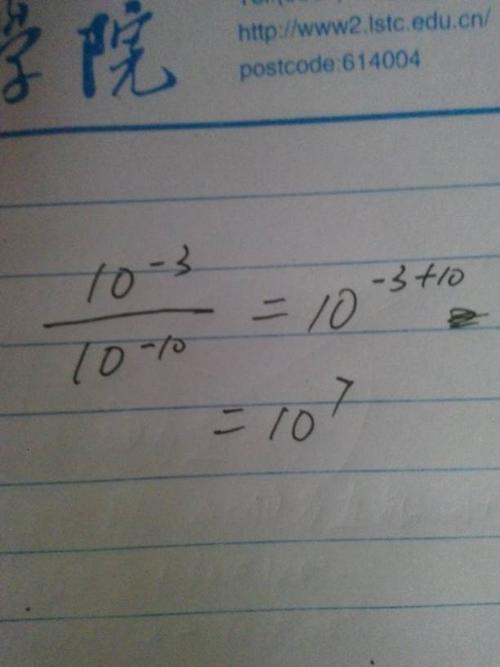 学院
http://www2.lstc.edu.cn/
postcode:614004
10^-3 / 10^-10 = 10^-3+10
= 10^7